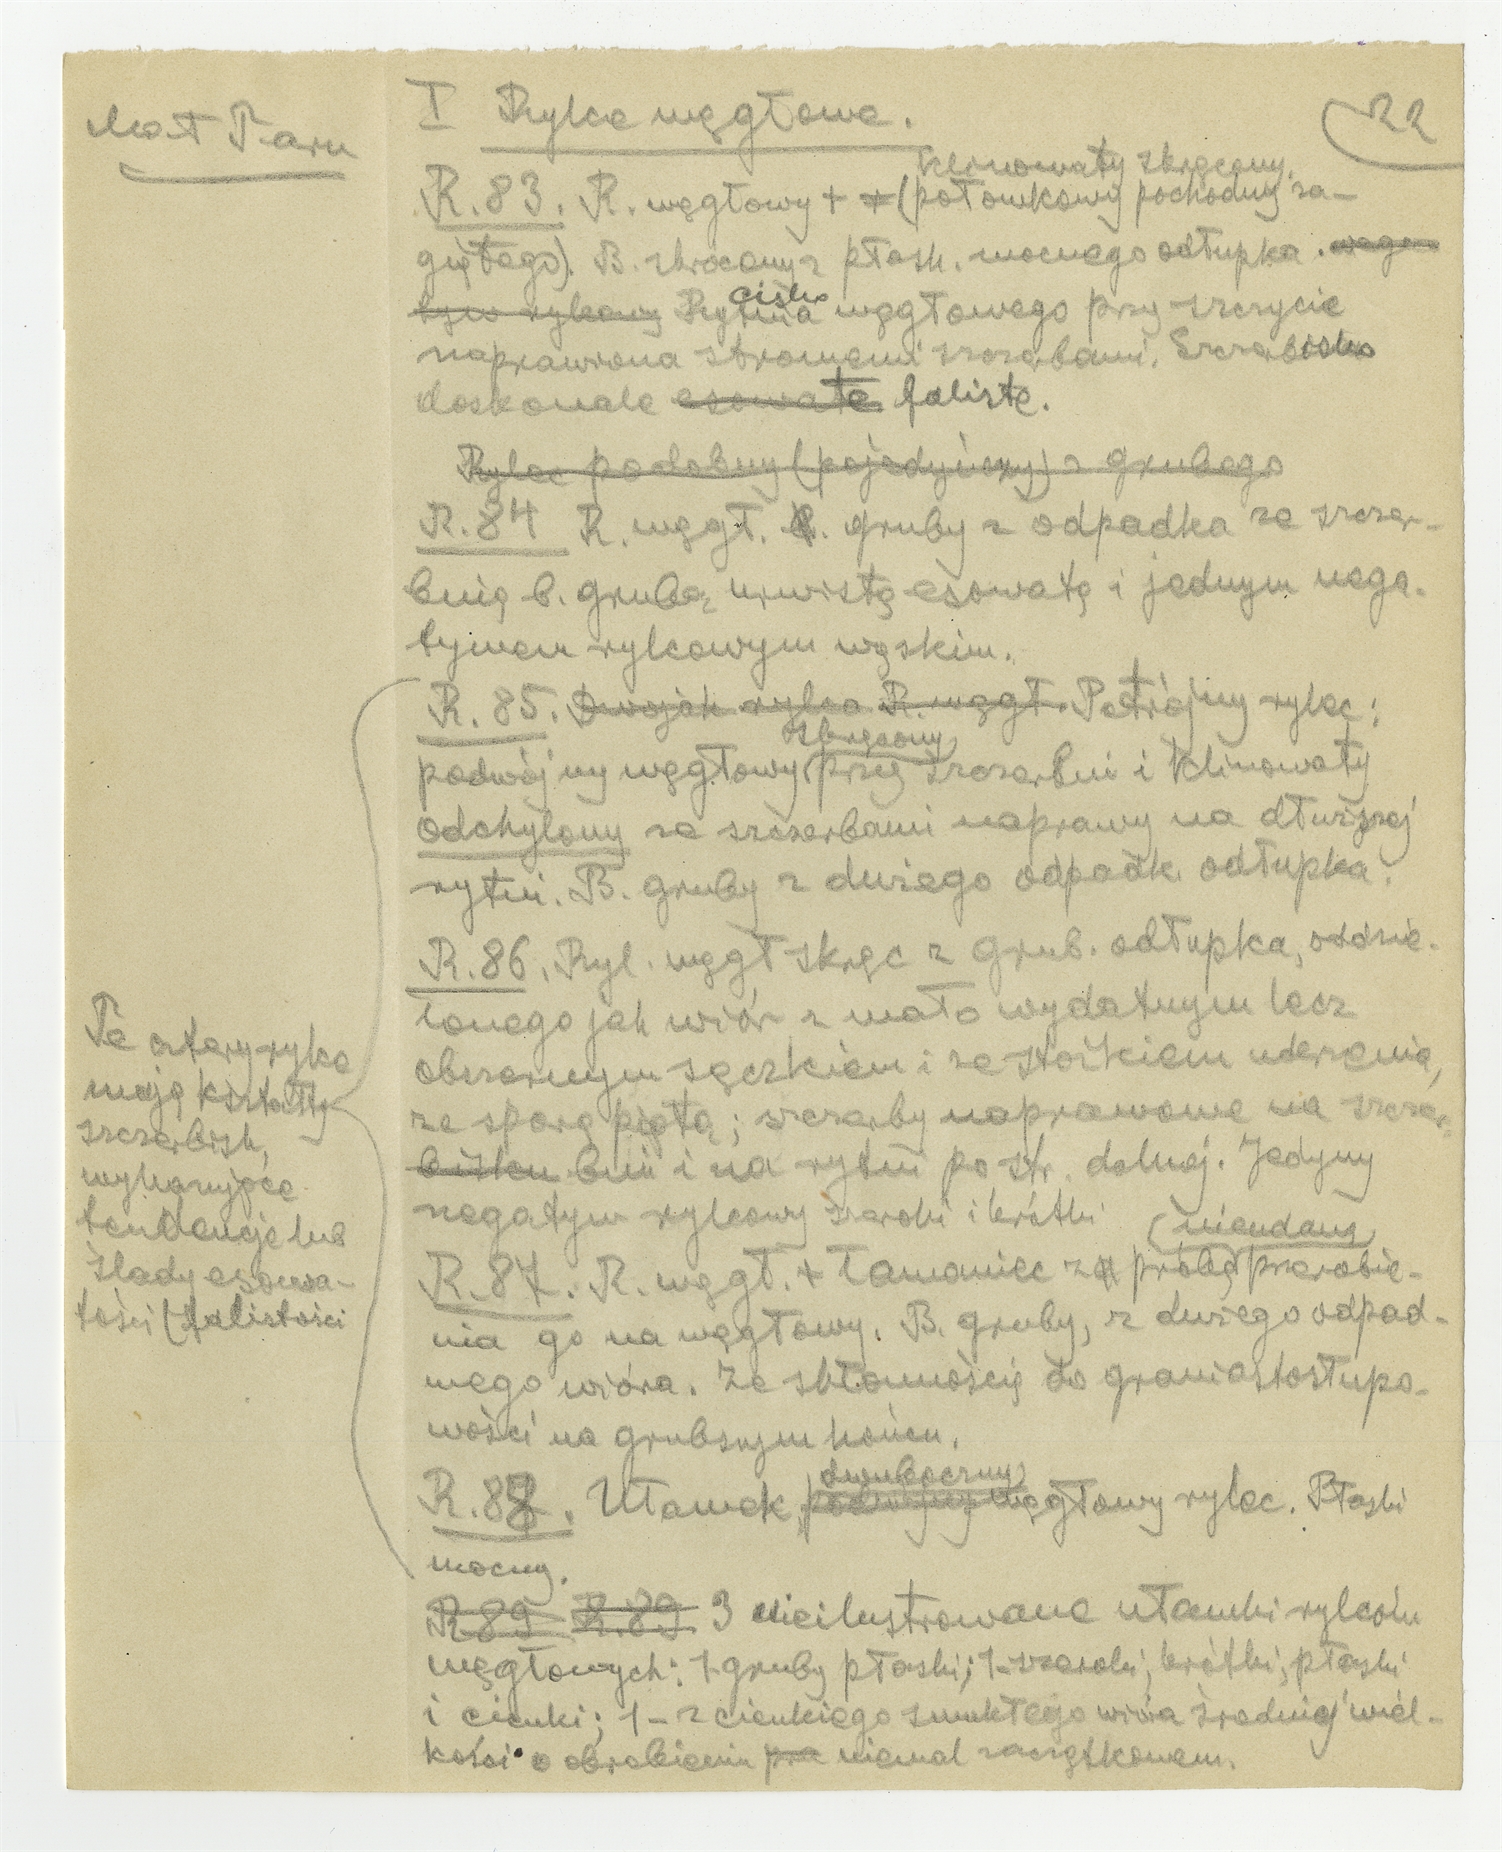 I Rylce węgłowe.
22
R. 83. R. węgłowy + (połówkowy pochodny za-
klinowaty skręcony.
giętego). B. skrócony z płask. mocnego odłupka. nega-
tyw rylcowy Rytnia węgłowego przy szczycie
cisko
naprawiona stromemi szczerbami. Szczerbisko
doskonale esowate faliste.
Rylec podobny (pojedyńczy) z grubego
R. 84 R. węgł. B. gruby z odpadka ze szczer-
bnią b. grubą urwistą esowatą i jednym nega-
tywem rylcowym wąskim.
R. 85. Dwojak rylca R. węgł. Potrójny rylec:
skręcony
podwójny węgłowy przy szczerbni i klinowaty
odchylony ze szczerbami naprawy na dłuższej
rytni. B. gruby z dużego odpadk. odłupka.
R. 86. Ryl. węgł skręc z grub. odłupka, oddzie-
lonego jak wiór z mało wydatnym lecz
obszernym sęczkiem i ze stożkiem uderzenia,
ze sporą piętą; szczerby naprawowe na szczer-
bisku bni i na rytni po str. dolnej. Jedyny
negatyw rylcowy szeroki i krótki
(nieudaną)
R. 87. R. węgł. + łamaniec z próbą przerobie-
nia go na węgłowy. B. gruby, z dużego odpad-
wego wióra. Ze skłonnością do graniastosłupo-
wości na grubszym końcu.
dwuboczny
R. 88. Ułamek, podwójny węgłowy rylec. Płaski
mocny.
R 89 R. 89 3 nieilustrowane ułamki rylców
węgłowych: 1-gruby płaski; 1-szeroki, krótki, płaski
i cienki; 1-z cienkiego smukłego wióra średniej wiel-
kości o obrobieniu pra niemal zaczątkowem.
Te cztery rylce
mają kształty
szczerbisk,
wykazujące
tendencje lub
ślady esowa-
tości (falistości